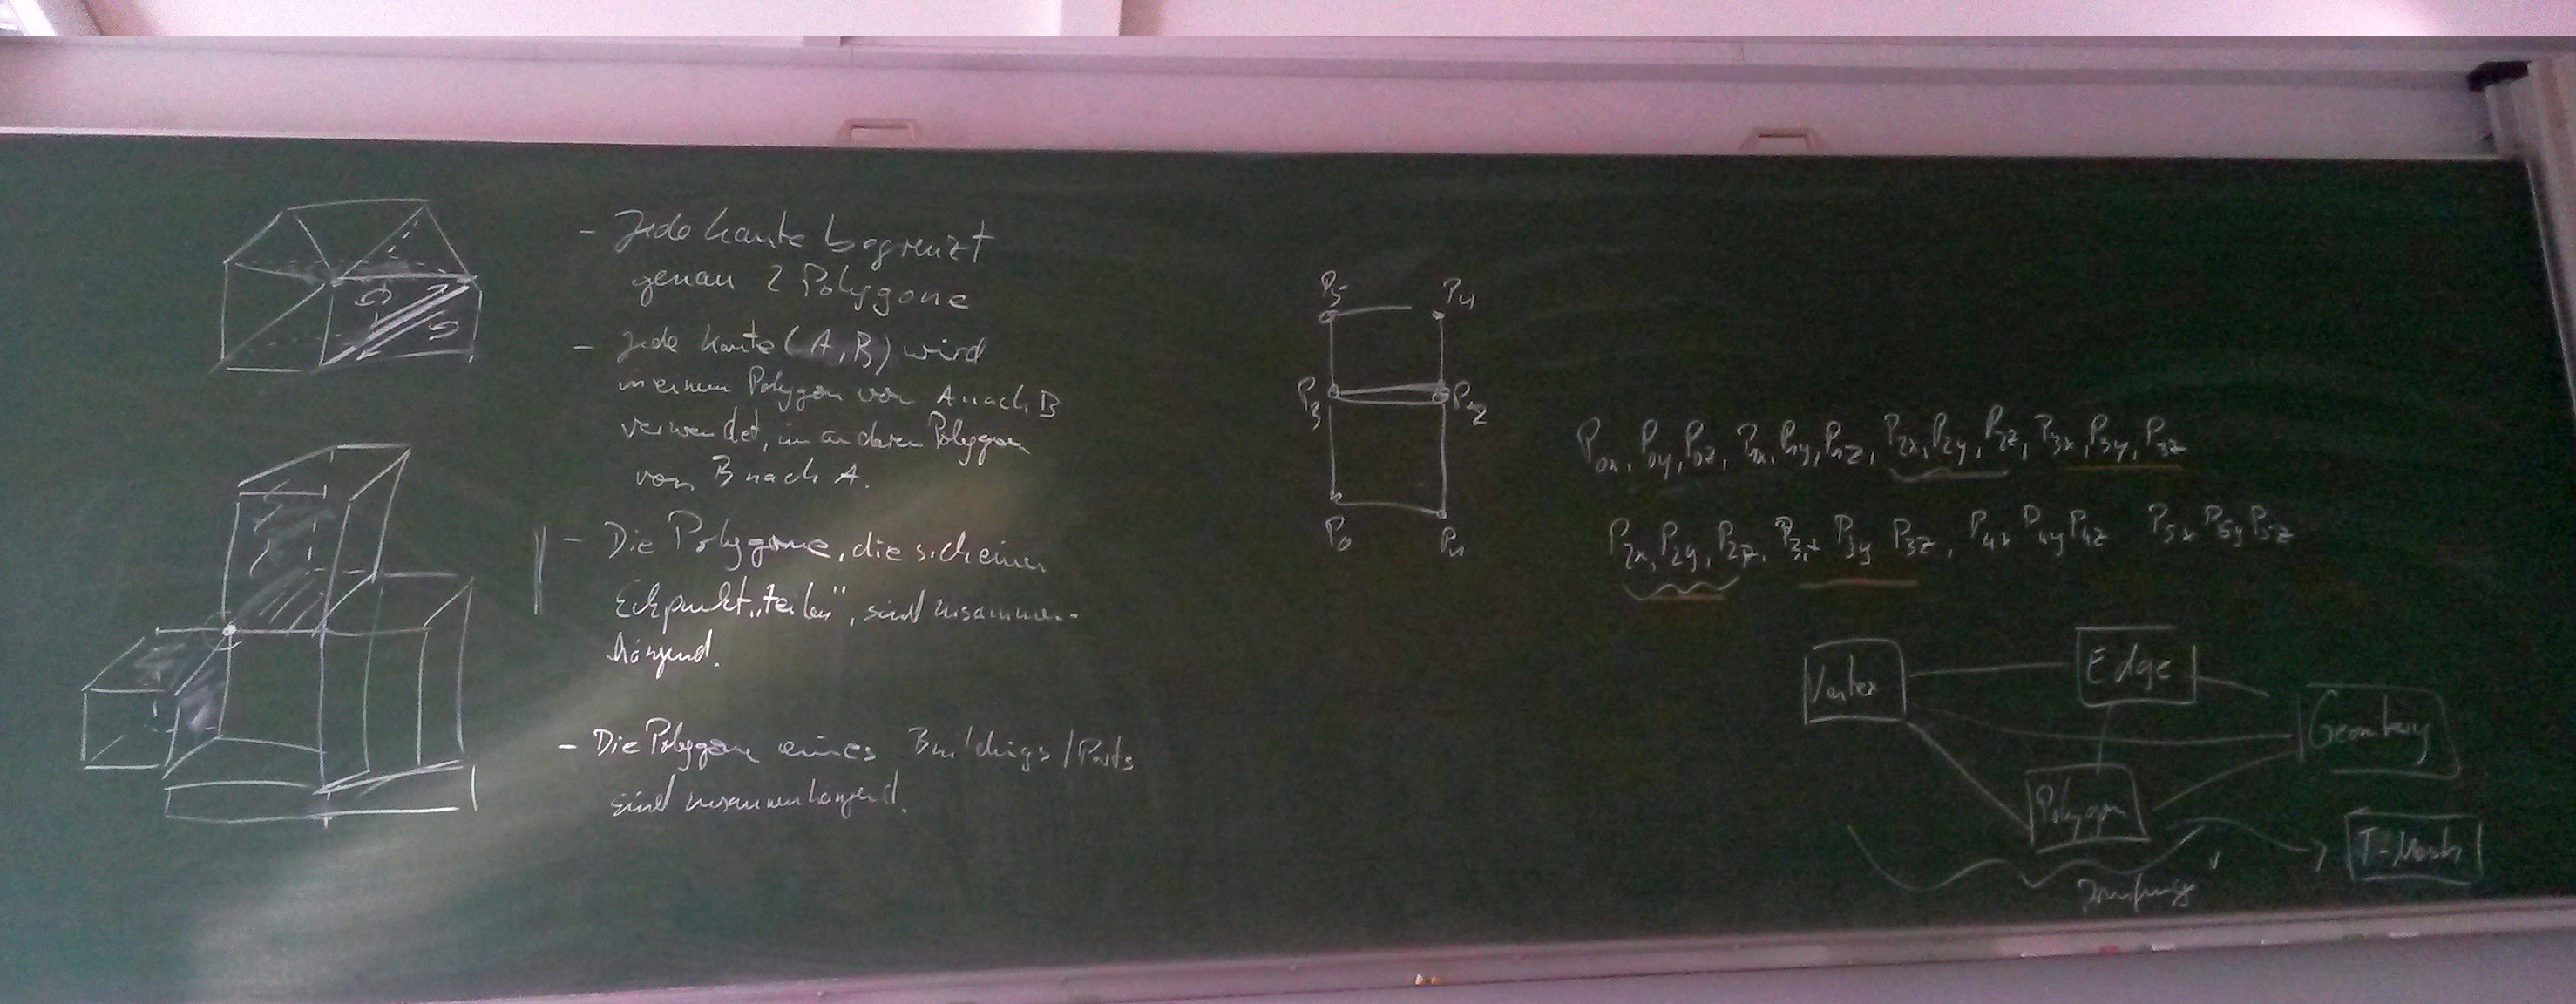 - Jede Kante begrenzt
genau 2 Polygone
- Jede Kante (A, B) wird
in einem Polygon von A nach B
verwendet, im anderen Polygon
von B nach A.
- Die Polygone, die sich einen
Eckpunkt „teilen", sind zusammen-
hängend.
- Die Polygone eines Buildings/Parts
sind zusammenhängend.
P5 P4
P3 P2
P0 P1
P0x, P0y, P0z, P1x, P1y, P1z, P2x, P2y, P2z, P3x, P3y, P3z
P2x, P2y, P2z, P3x P3y P3z, P4x P4y P4z P5x P5y P5z
Vertex
Edge
Geometry
Polygon
T-Mesh